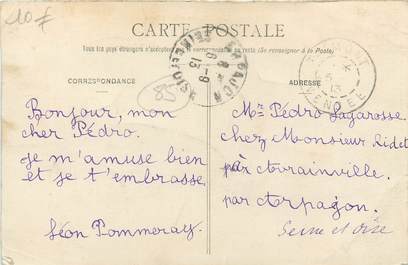 10 f
CARTE POSTALE
Tous les pays étrangers n'acceptent pas la correspondance au recto (Se renseigner à la Poste)
CORRESPONDANCE
ADRESSE
85
Bonjour, mon
cher Pédro.
je m'amuse bien
et je t'embrasse
Léon Pommeray
Mr Pédro Lagarosse
chez Monsieur Lidet
par
par Arpajon
Seine et Oise
ARPAJON
SEINE-ET-OISE
6-8
13
VENDEE